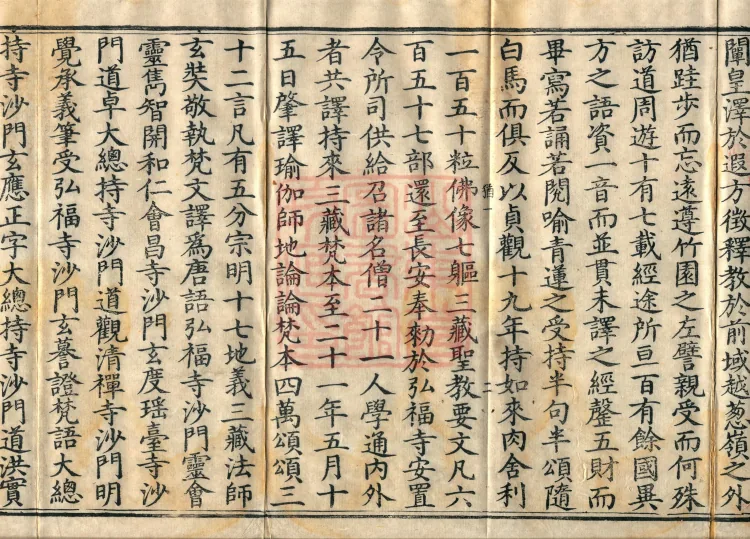 闡皇澤於遐方徵釋教於前域越葱嶺之外
猶跬步而忘遠遵竹園之左譬親受而何殊
訪道周遊十有七載經途所亘百有餘國異
方之語資一音而並貫未譯之經罄五財而
畢寫若誦若閱喻青蓮之受持半句半頌隨
白馬而俱反以貞觀十九年持如來肉舍利
猶一 二
一百五十粒佛像七軀三藏聖教要文凡六
百五十七部還至長安奉勑於弘福寺安置
令所司供給召諸名僧二十一人學通內外
者共譯持來三藏梵本至二十一年五月十
五日肇譯瑜伽師地論論梵本四萬頌頌三
十二言凡有五分宗明十七地義三藏法師
玄奘敬執梵文譯爲唐語弘福寺沙門靈會
靈雋智開和仁會昌寺沙門玄度瑶臺寺沙
門道卓大總持寺沙門道觀清禪寺沙門明
覺承義筆受弘福寺沙門玄謩證梵語大總
持寺沙門玄應正字大總持寺沙門道洪實